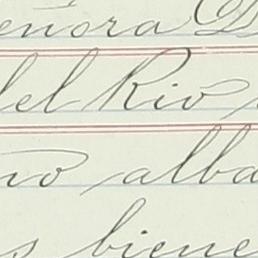 eñora D
del Rio
no alba
s biene